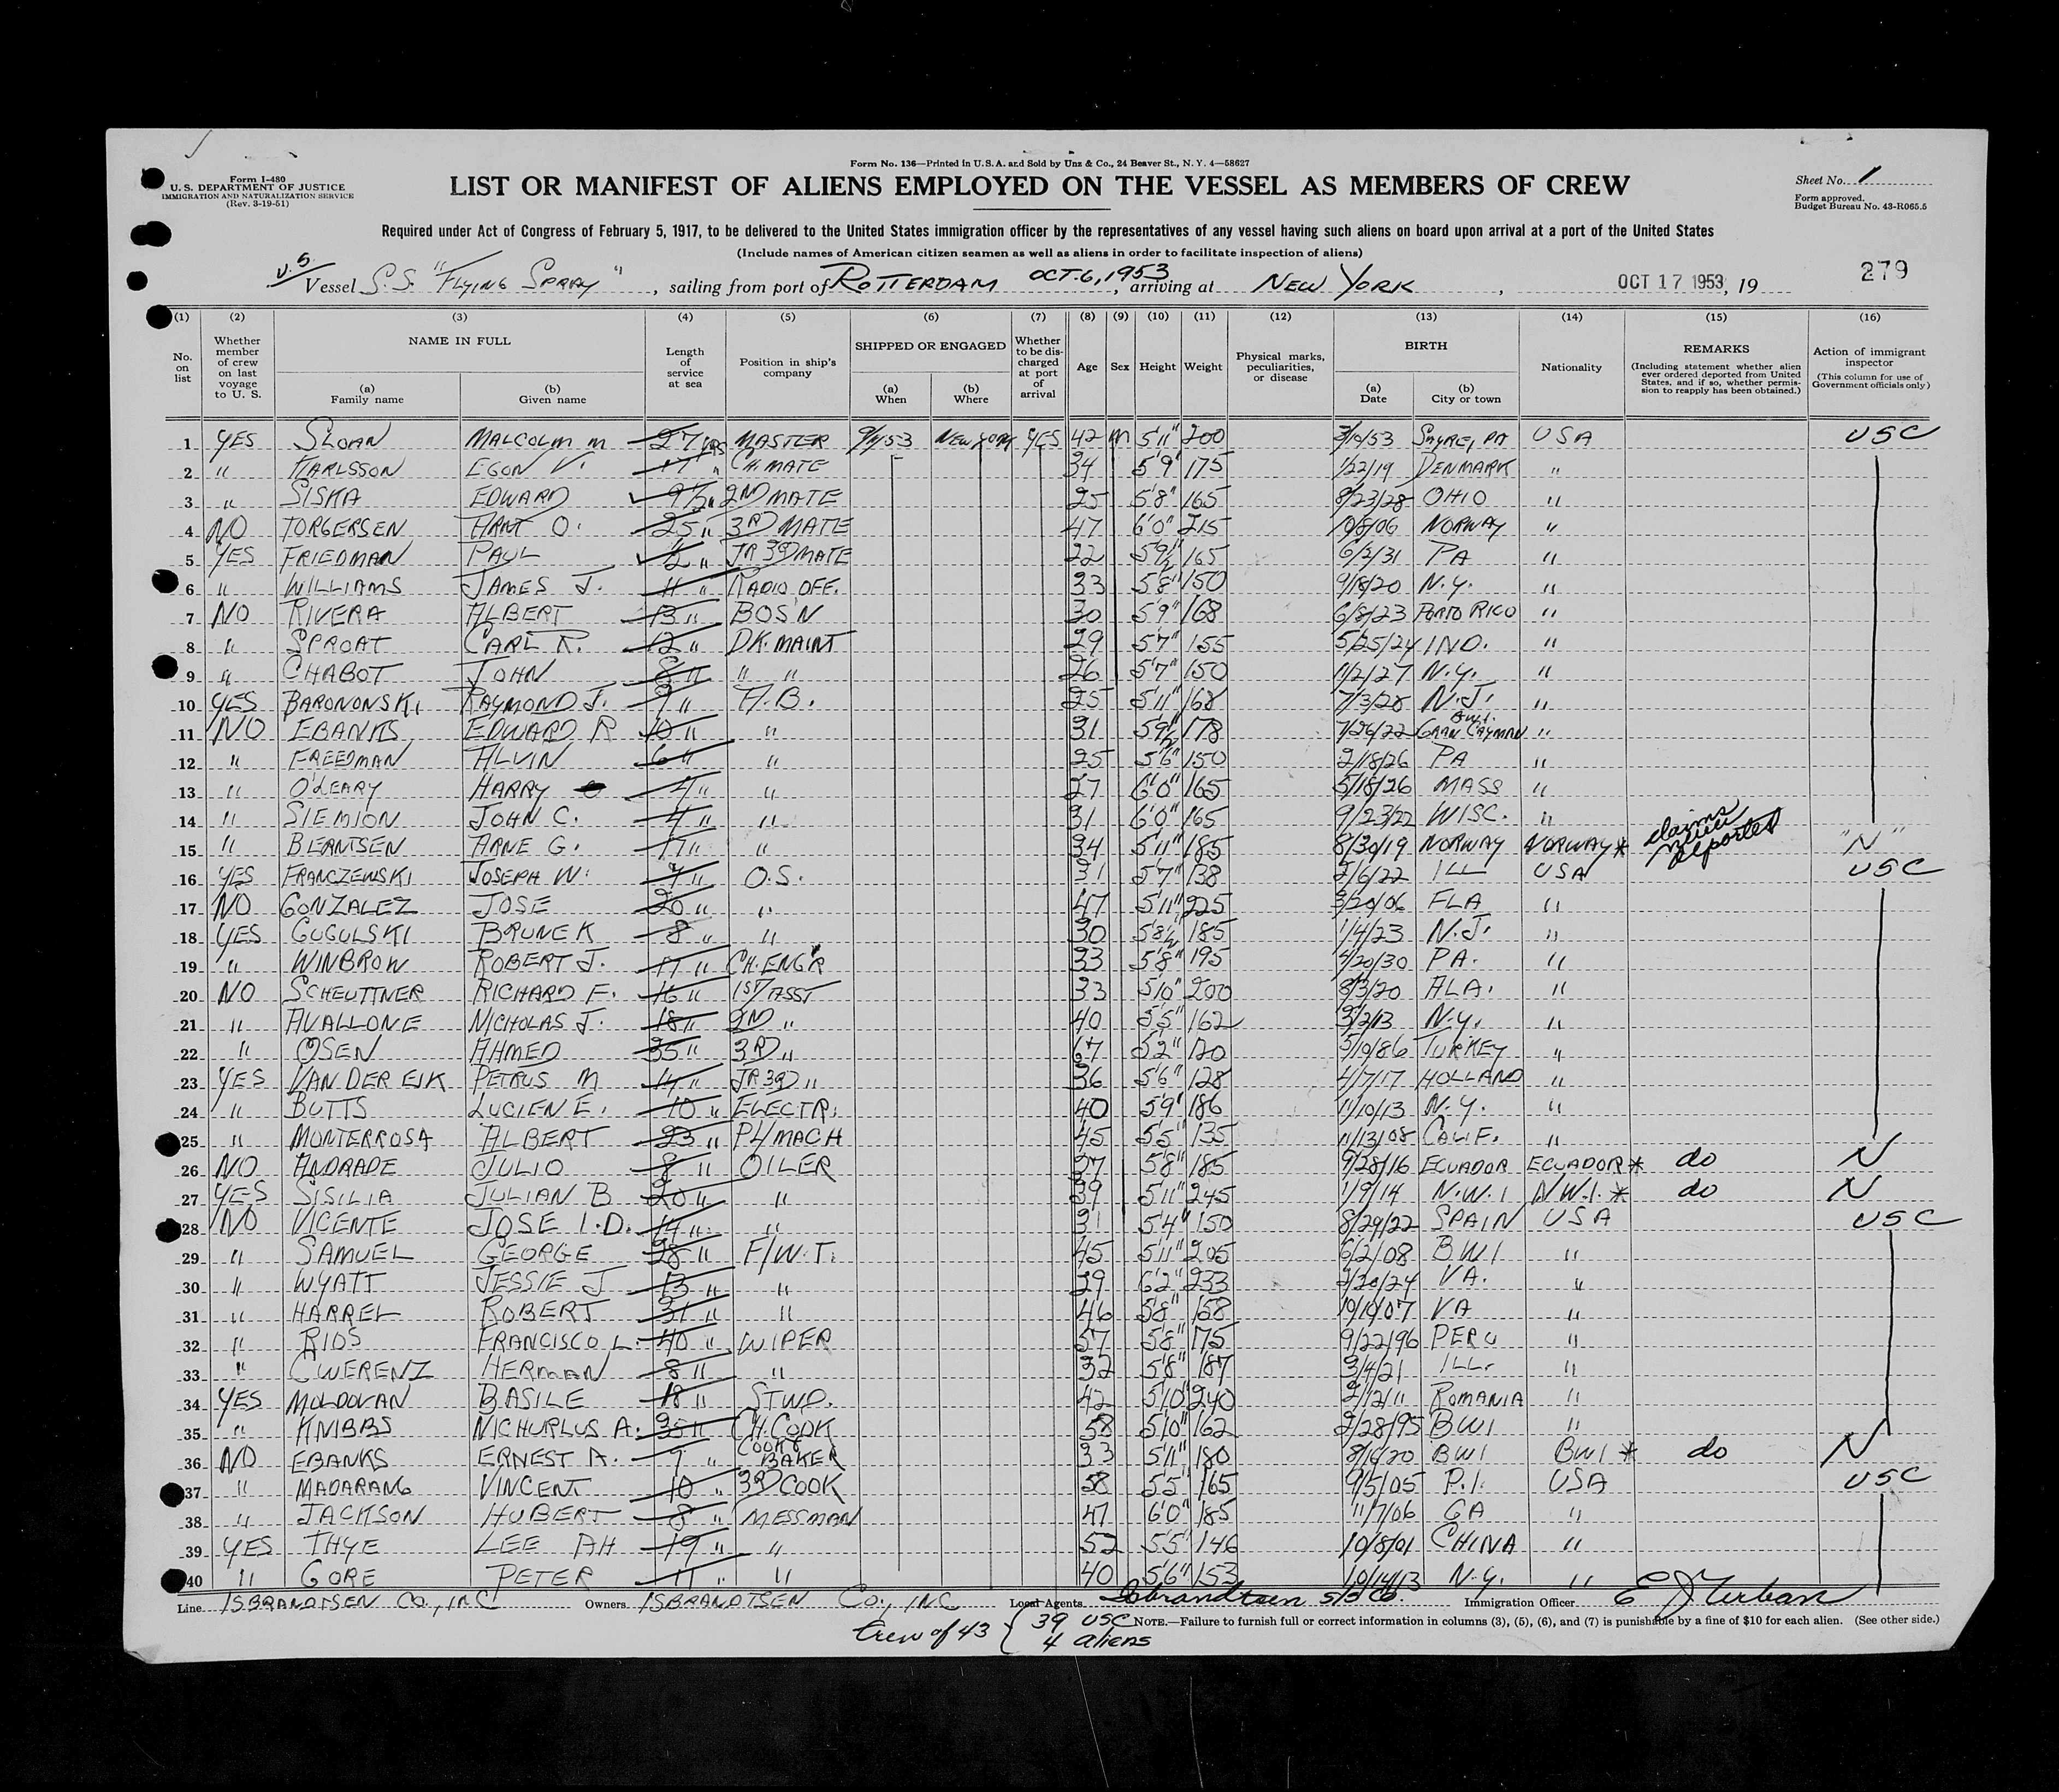 Form No. 136—Printed in U.S.A. and Sold by Unz & Co., 24 Beaver St., N. Y. 4—58627
Form I-480
U. S. DEPARTMENT OF JUSTICE
IMMIGRATION AND NATURALIZATION SERVICE
(Rev. 3-19-51)
LIST OR MANIFEST OF ALIENS EMPLOYED ON THE VESSEL AS MEMBERS OF CREW
Sheet No. 1
Form approved.
Budget Bureau No. 43-R065.5
Required under Act of Congress of February 5, 1917, to be delivered to the United States immigration officer by the representatives of any vessel having such aliens on board upon arrival at a port of the United States
(Include names of American citizen seamen as well as aliens in order to facilitate inspection of aliens)
U.S. Vessel S.S. "FLYING SPRAY", sailing from port of ROTTERDAM OCT. 6, 1953, arriving at NEW YORK, OCT 17 1953, 19 279
(1) (2) (3) (4) (5) (6) (7) (8) (9) (10) (11) (12) (13) (14) (15) (16)
No. on list
Whether member of crew on last voyage to U. S.
NAME IN FULL
(a) Family name
(b) Given name
Length of service at sea
Position in ship's company
SHIPPED OR ENGAGED
(a) When
(b) Where
Whether to be discharged at port of arrival
Age Sex Height Weight
Physical marks, peculiarities, or disease
BIRTH
(a) Date
(b) City or town
Nationality
REMARKS
(Including statement whether alien ever ordered deported from United States, and if so, whether permission to reapply has been obtained.)
Action of immigrant inspector
(This column for use of Government officials only)
1 YES SLOAN MALCOLM M 27 YRS MASTER 9/1/53 NEW YORK YES 42 M 5'11" 200 SAYRE, PA USA USC
2 " KARLSSON EGON V. 17 " CH. MATE 34 5'9" 175 1/22/19 DENMARK "
3 " SISKA EDWARD 9 1/2 " 2ND MATE 25 5'8" 165 8/23/28 OHIO "
4 NO TORGERSEN O. 25 " 3RD MATE 47 6'0" 215 10/8/06 NORWAY "
5 YES FRIEDMAN PAUL 1/2 " JR 3RD MATE 22 5'9 1/2" 165 6/2/31 PA "
6 " WILLIAMS JAMES J. 11 " RADIO OFF. 33 5'8" 150 9/18/20 N.Y. "
7 NO RIVERA ALBERT 13 " BOS'N 30 5'9" 168 6/8/23 PORTO RICO "
8 " SPROAT CARL R. 12 " DK. MAINT 29 5'7" 155 5/25/24 IND. "
9 " CHABOT JOHN 8 " " " 26 5'7" 150 11/2/27 N.Y. "
10 YES BARONONSKI RAYMOND J. 9 " A.B. 25 5'11" 168 7/3/28 N.J. "
11 NO EBANKS EDWARD R 10 " " 31 5'9 1/2" 178 7/26/22 GRAN CAYMAN B.W.I. "
12 " FREEDMAN ALVIN 6 " " 25 5'6" 150 2/18/26 PA "
13 " O'LEARY HARRY 4 " " 27 6'0" 165 5/18/26 MASS "
14 " SIEMION JOHN C. 4 " " 31 6'0" 165 9/23/22 WISC. "
15 " BERNTSEN ARNE G. 17 " " 34 5'11" 185 8/30/19 NORWAY NORWAY * claims never deported "N"
16 YES FRANCZEWSKI JOSEPH W. 9 " O.S. 31 5'7" 138 2/6/22 ILL USA USC
17 NO GONZALEZ JOSE 20 " " 47 5'11" 225 3/20/06 FLA "
18 YES GUGULSKI BRUNEK 8 " " 30 5'8 1/2" 185 1/4/23 N.J. "
19 " WINBROW ROBERT J. 17 " CH. ENG'R 33 5'8" 195 4/20/30 PA. "
20 NO SCHEUTTNER RICHARD F. 16 " 1ST ASST 33 5'10" 200 8/3/20 ALA. "
21 " AVALLONE NICHOLAS J. 18 " 2ND " 40 5'5" 162 3/2/13 N.Y. "
22 " OSEN AHMED 35 " 3RD " 67 5'2" 120 5/10/86 TURKEY "
23 YES VAN DER EIK PETRUS M 14 " JR 3RD " 36 5'6" 128 4/7/17 HOLLAND "
24 " BUTTS LUCIEN E. 10 " ELECTR. 40 5'9" 186 11/10/13 N.Y. "
25 " MONTERROSA ALBERT 23 " P/MACH 45 5'5" 135 11/13/08 CALIF. "
26 NO ANDRADE JULIO 8 " OILER 37 5'8" 185 9/28/16 ECUADOR ECUADOR * do N
27 YES SISILIA JULIAN B 20 " " 39 5'11" 245 1/9/14 N.W.I N.W.I. * do N
28 NO VICENTE JOSE I.D. 14 " " 31 5'4" 150 8/29/22 SPAIN USA USC
29 " SAMUEL GEORGE 28 " F/W.T. 45 5'11" 205 6/2/08 BWI "
30 " WYATT JESSIE J 13 " " 29 6'2" 233 2/20/24 VA. "
31 " HARREL ROBERT 31 " " 46 5'8" 158 VA "
32 " RIOS FRANCISCO L. 40 " WIPER 57 5'8" 175 9/22/96 PERU "
33 " CWERENZ HERMAN 8 " " 32 5'8" 187 3/4/21 ILL. "
34 YES MOLDOVAN BASILE 18 " STWD. 42 5'10" 240 2/12/11 ROMANIA "
35 " KNIBBS NICHURLUS A. 35 " CH. COOK 58 5'10" 162 2/28/95 BWI "
36 NO EBANKS ERNEST A. 9 " COOK & BAKER 33 5'11" 180 8/14/20 BWI BWI * do N
37 " MADARANG VINCENT 10 " 3RD COOK 58 5'5" 165 9/5/05 P.I. USA USC
38 " JACKSON HUBERT 8 " MESSMAN 47 6'0" 185 11/7/06 GA "
39 YES THYE LEE AH 19 " " 52 5'5" 146 10/8/01 CHINA "
40 " GORE PETER 11 " " 40 5'6" 153 10/14/13 N.Y. "
Line ISBRANDTSEN CO., INC Owners ISBRANDTSEN CO., INC Local Agents Isbrandtsen S/S Co. Immigration Officer
Crew of 43 { 39 USC
4 aliens
NOTE.—Failure to furnish full or correct information in columns (3), (5), (6), and (7) is punishable by a fine of $10 for each alien. (See other side.)